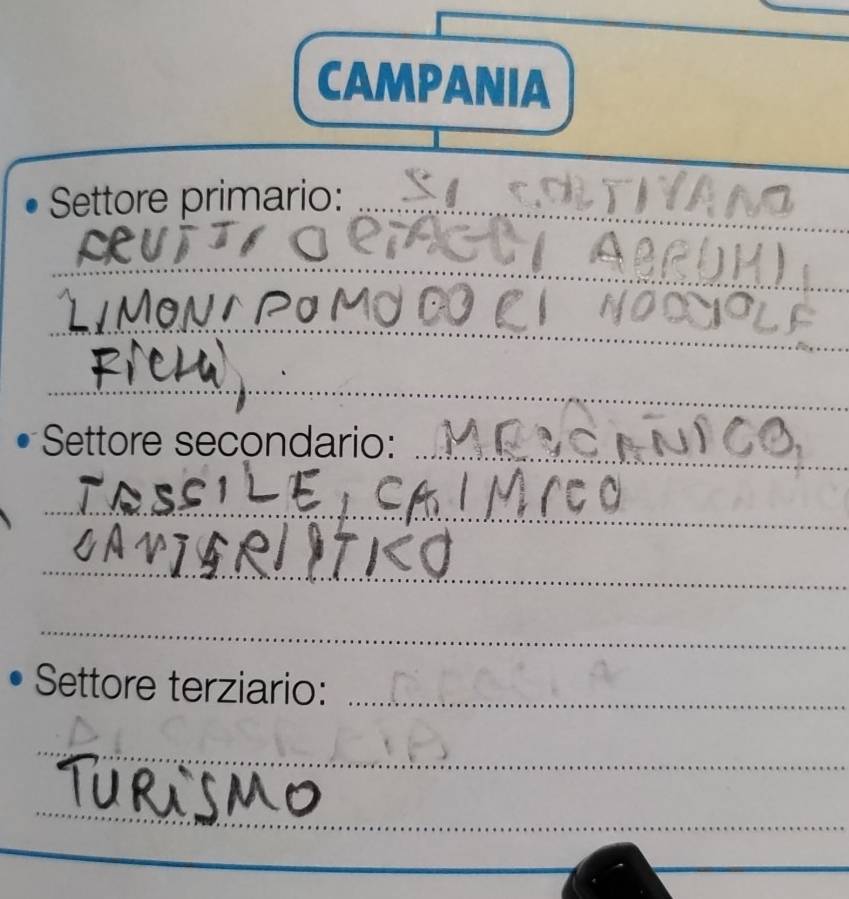 CAMPANIA
• Settore primario: SI COLTIVANO
FRUTTI ORTAGGI AGRUMI,
LIMONI POMODORI NOCCIOLE
FICHI,
• Settore secondario: MECCANICO,
TESSILE, CHIMICO
CANTIERISTICO
• Settore terziario: REGGIA
DI CASERTA
TURISMO